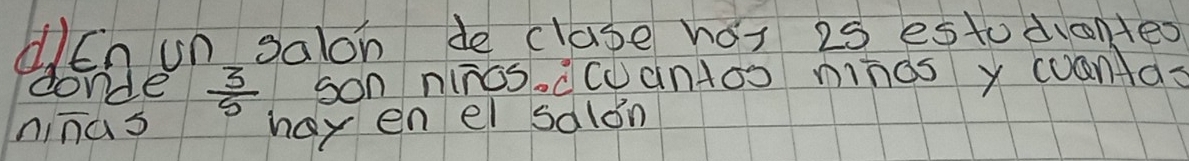 d) En un salón de clase hay 25 estudiantes
donde 3/5 son niños. ¿cuantos niños y cuantas
niñas hay en el salón